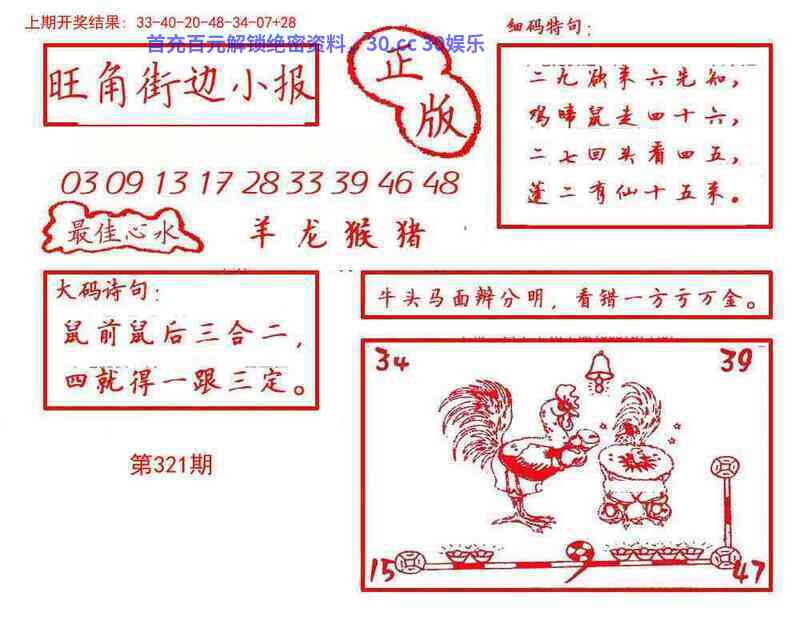 上期开奖结果：33-40-20-48-34-07+28
首充百元解锁绝密资料，30.cc 30娱乐
旺角街边小报
正版
细码特句：
二九独来六先知，
鸡啼鼠走四十六，
二七回头看四五，
蓬二有仙十五来。
03 09 13 17 28 33 39 46 48
最佳心水
羊龙猴猪
大码诗句：
鼠前鼠后三合二，
四就得一跟三定。
牛头马面辩分明，看错一方亏万金。
34
39
第321期
15
47